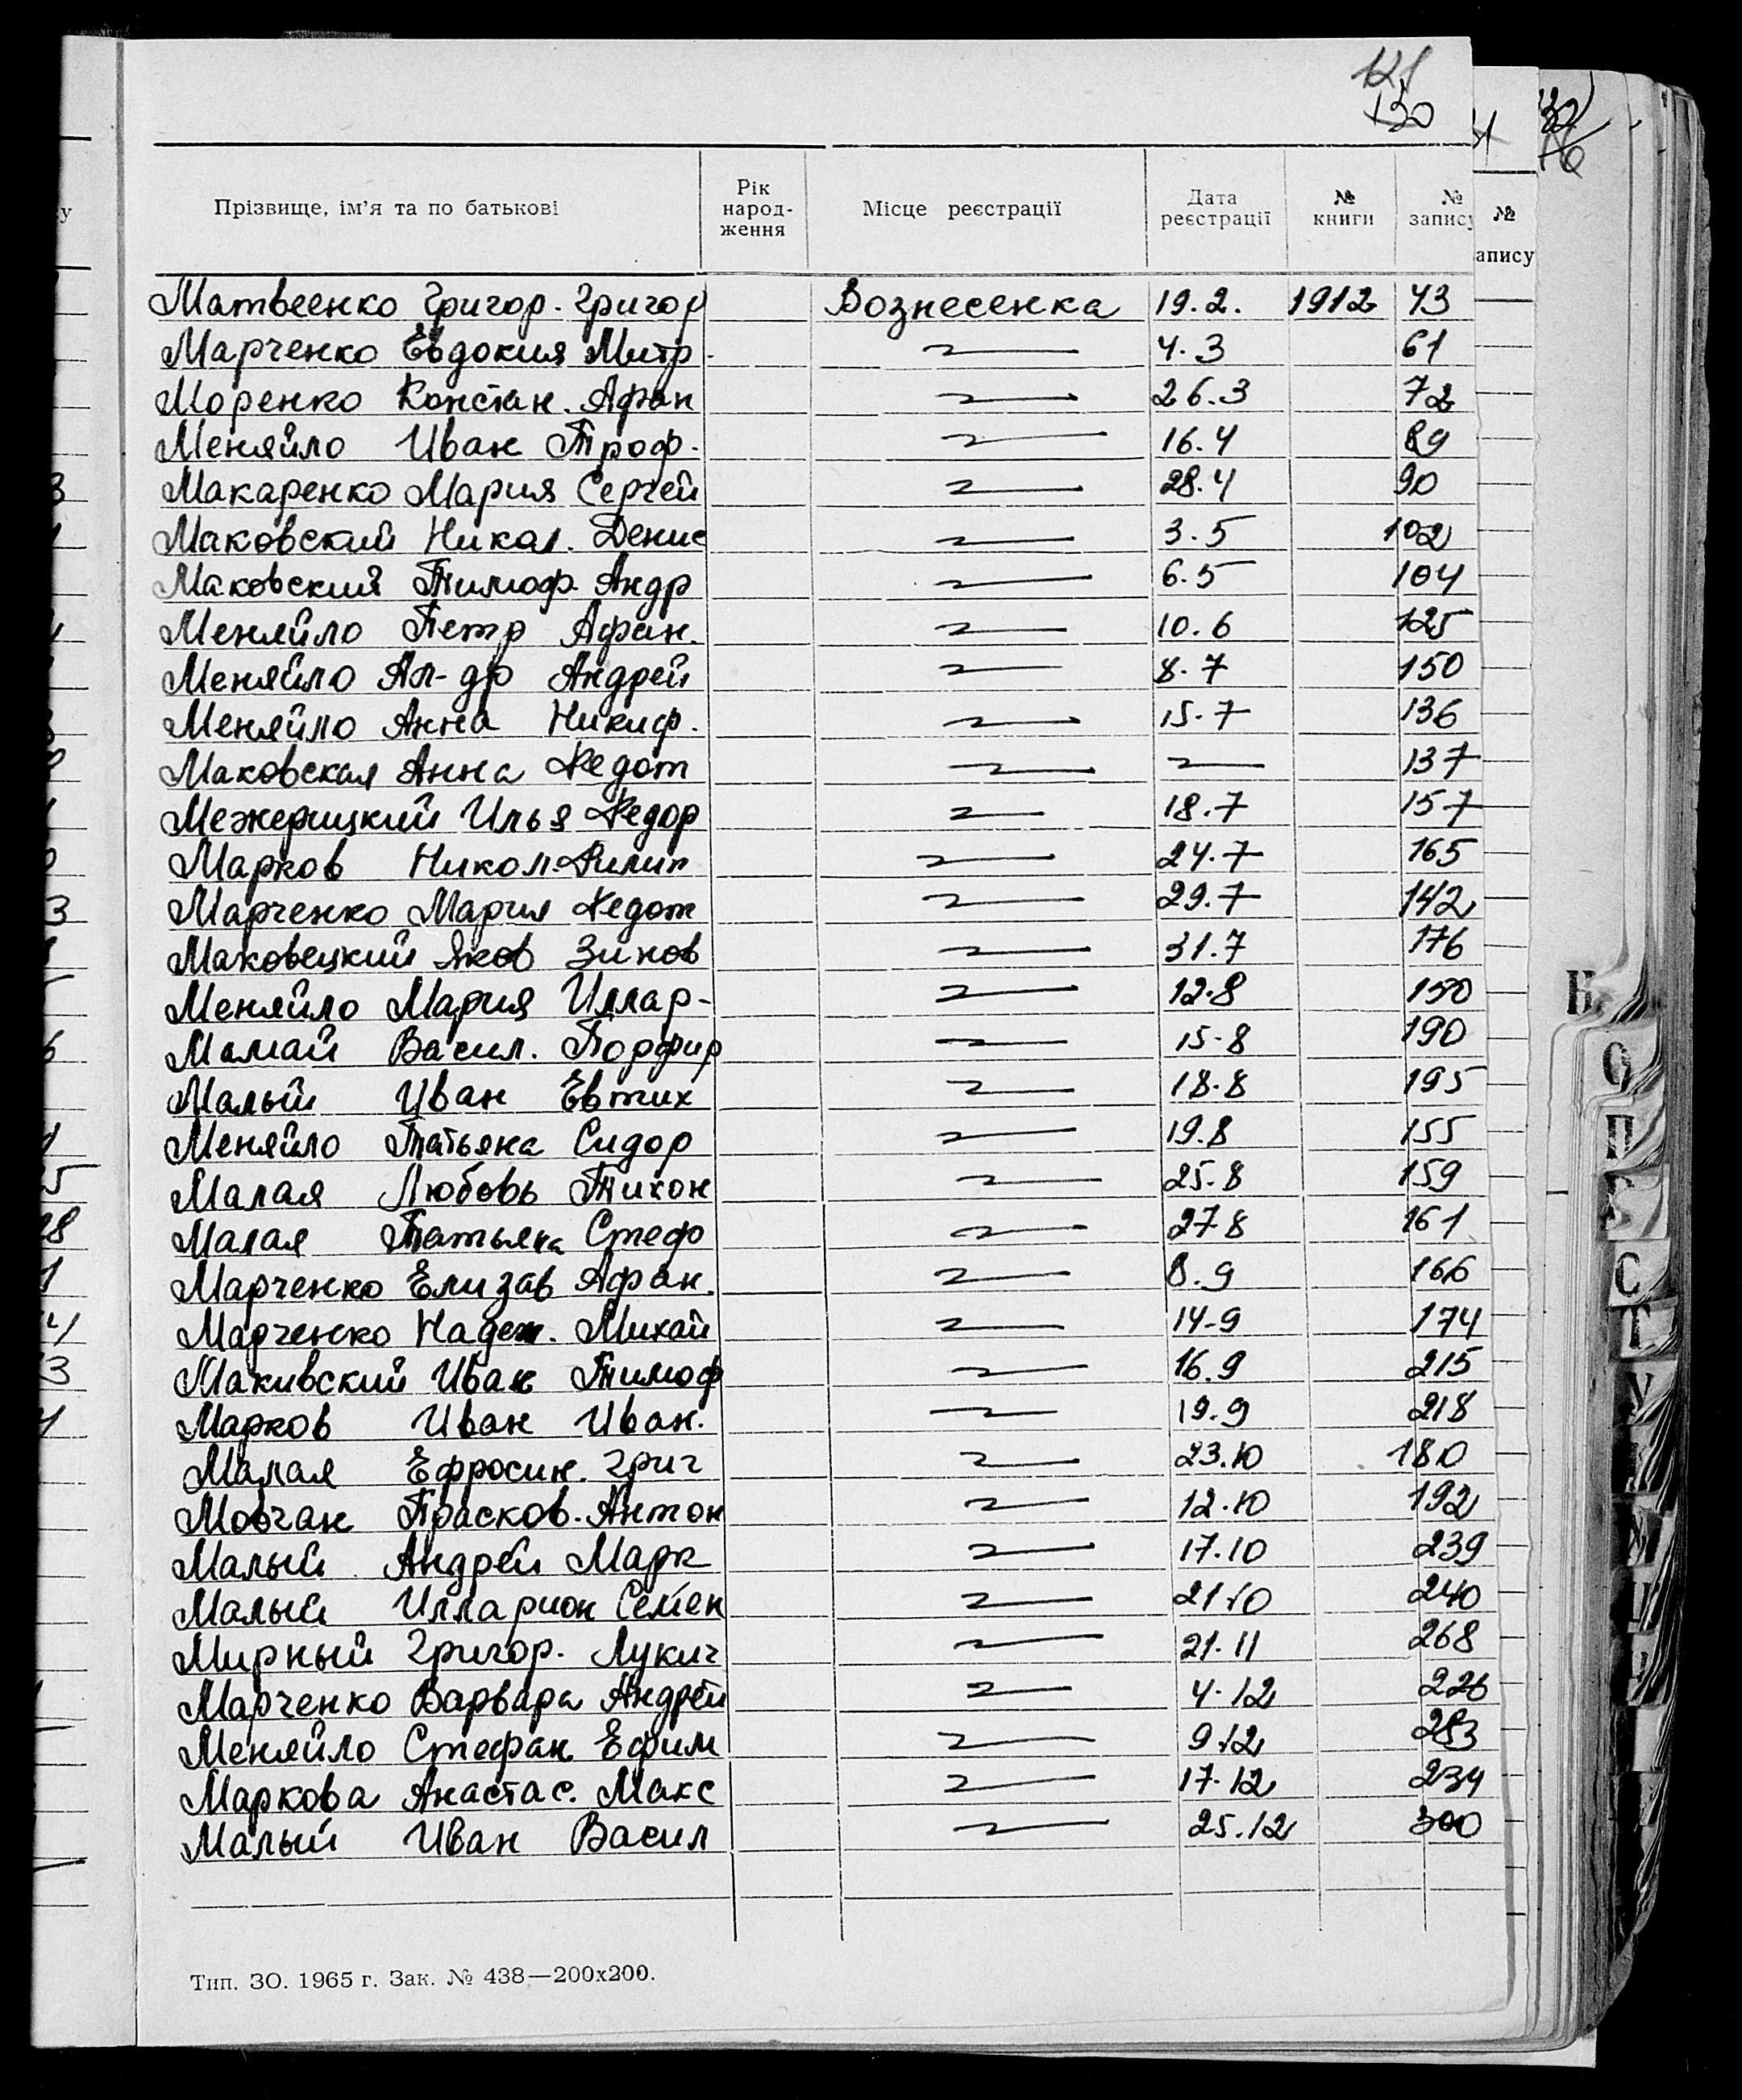 121
130
Прізвище, ім'я та по батькові Рік народження Місце реєстрації Дата реєстрації № книги № запису
Матвеенко Григор. Григор Вознесенка 19.2. 1912 43
Марченко Евдокия Митр. 4.3 61
Моренко Констан. Афан 26.3 72
Меняйло Иван Троф. 16.4 89
Макаренко Мария Сергей 28.4 90
Маковский Никол. Денис 3.5 102
Маковский Тимоф. Андр 6.5 104
Меняйло Петр Афан. 10.6 125
Меняйло Ал-др Андрей 8.7 150
Меняйло Анна Никиф. 15.7 136
Маковская Анна Федот 137
Межерицкий Илья Федор 18.7 157
Марков Никол. Филип 24.7 165
Марченко Мария Федот 29.7 142
Маковецкий Яков Зинов 31.7 176
Меняйло Мария Иллар- 12.8 150
Мамай Васил. Порфир 15.8 190
Малый Иван Евтих 18.8 195
Меняйло Татьяна Сидор 19.8 155
Малая Любовь Тихон 25.8 159
Малая Татьяна Стеф 27.8 161
Марченко Елизав Афан. 8.9 166
Марченко Надеж. Михай 14.9 174
Макивский Иван Тимоф 16.9 215
Марков Иван Иван. 19.9 218
Малая Ефросин. Григ 23.10 180
Мовчан Прасков. Антон 12.10 192
Малый Андрей Марк 17.10 239
Малый Илларион Семен 21.10 240
Мирный Григор. Лукич 21.11 268
Марченко Варвара Андрей 4.12 226
Меняйло Стефан Ефим 9.12 283
Маркова Анастас. Макс 17.12 234
Малый Иван Васил 25.12 300
Тип. ЗО. 1965 г. Зак. № 438—200х200.
№
запису
Н
О
П
С
Т
У